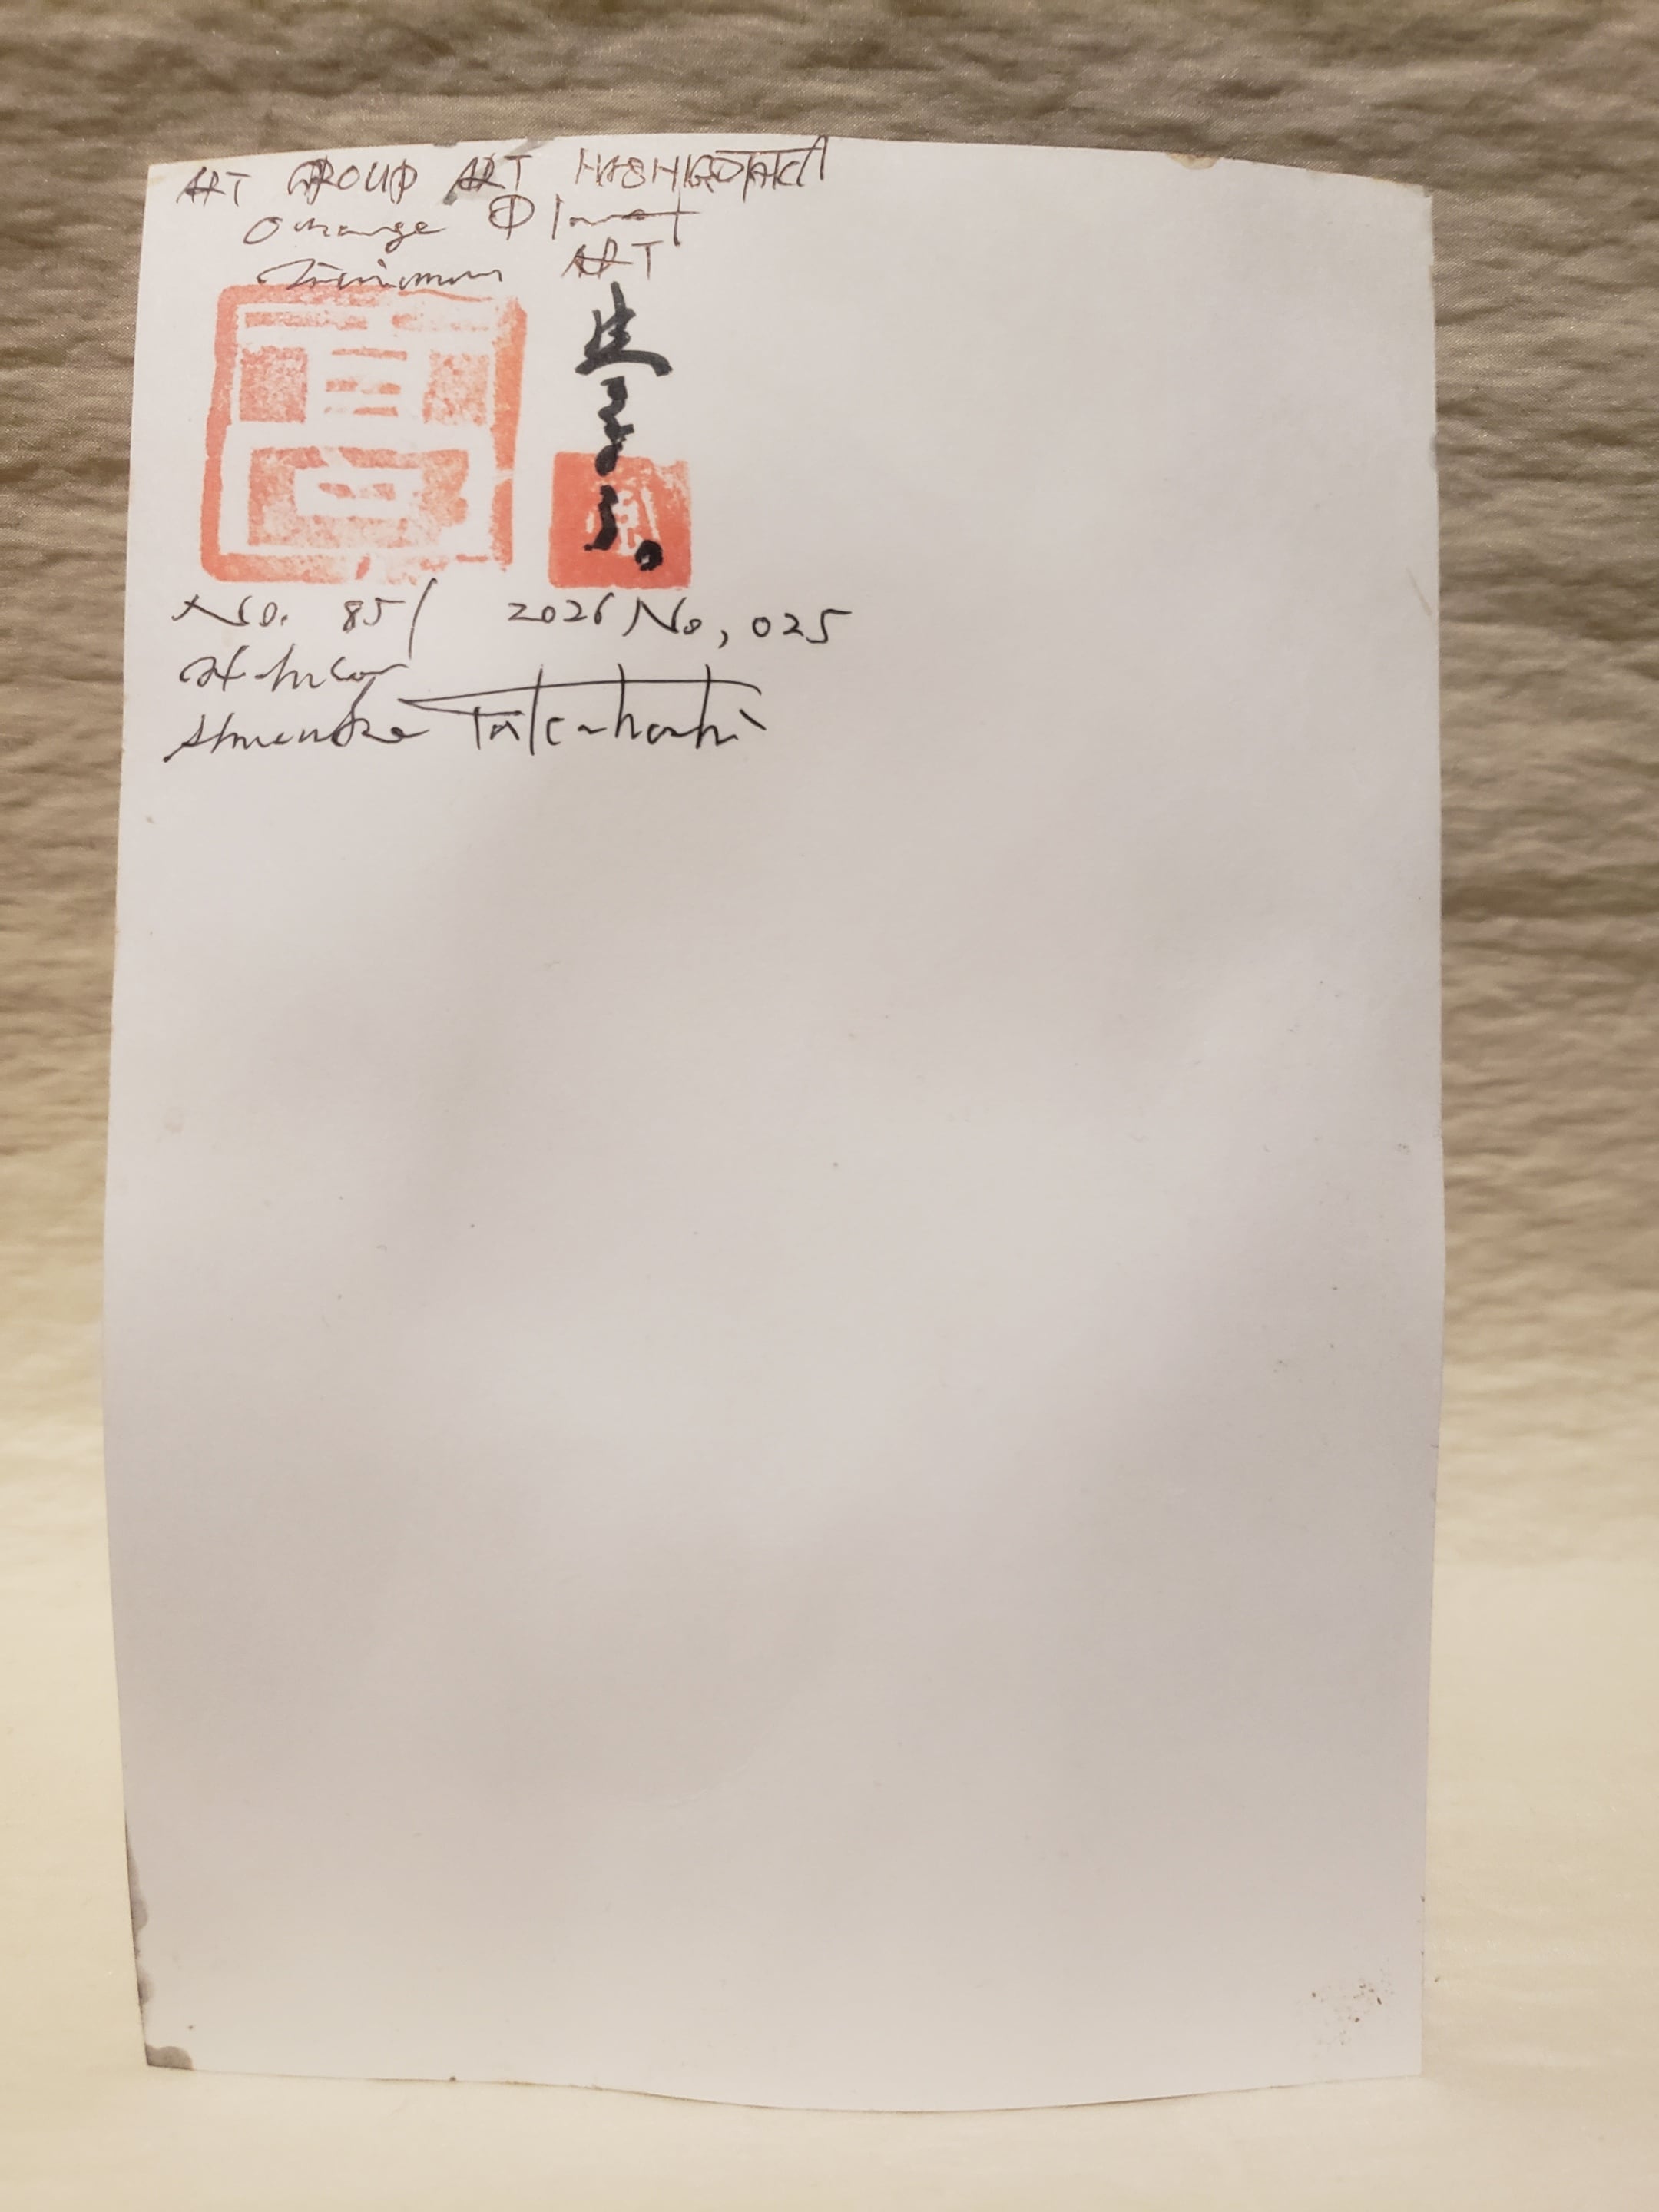 ART GROUP ART HASHIGOTAKA
Orange Planet
ART
髙
No. 851 2026 No, 025
Shunsuke Takahashi